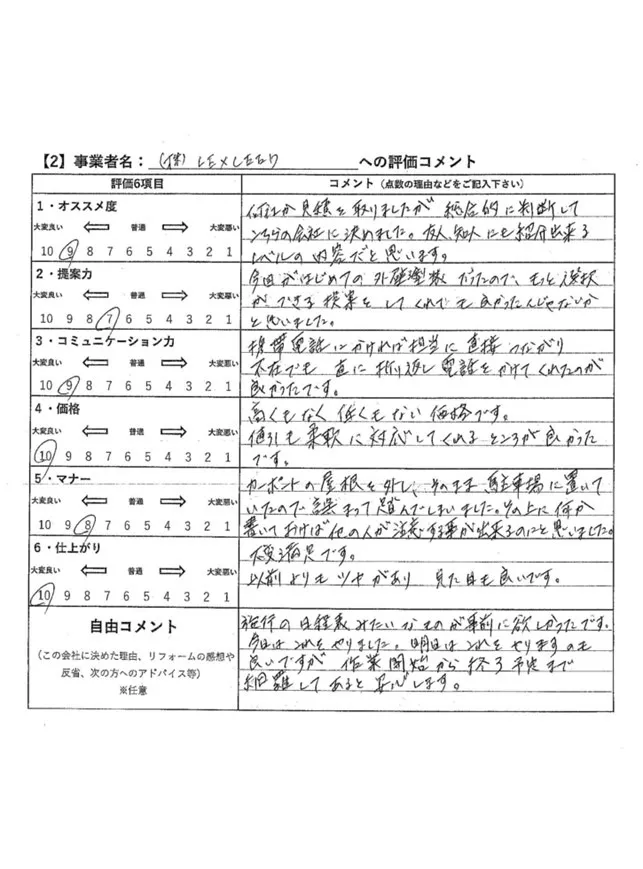 【2】事業者名： (株) LEXLEED への評価コメント
評価6項目
コメント（点数の理由などをご記入下さい）
1・オススメ度
大変良い 普通 大変悪い
10 9 8 7 6 5 4 3 2 1
何社か見積を取りましたが 総合的に判断して
こちらの会社に決めました。友人、知人にも紹介出来る
レベルの内容だと思います。
2・提案力
大変良い 普通 大変悪い
10 9 8 7 6 5 4 3 2 1
今回がはじめての外壁塗装だったので、もっと選択
ができる提案をしてくれても良かったんじゃないか
と思いました。
3・コミュニケーション力
大変良い 普通 大変悪い
10 9 8 7 6 5 4 3 2 1
携帯電話にかければ担当に直接つながり
不在でも 直に折り返し電話をかけてくれたのが
良かったです。
4・価格
大変良い 普通 大変悪い
10 9 8 7 6 5 4 3 2 1
高くもなく 低くもない価格です。
値引も柔軟に対応してくれるところが良かった
です。
5・マナー
大変良い 普通 大変悪い
10 9 8 7 6 5 4 3 2 1
カーポートの屋根を外し、そのまま駐車場に置いて
いたので誤まって踏んでしまいました。その上に何か
書いておけば他の人が注意する事が出来るのにと思いました。
6・仕上がり
大変良い 普通 大変悪い
10 9 8 7 6 5 4 3 2 1
大変満足です。
以前よりもツヤがあり 見た目も良いです。
自由コメント
（この会社に決めた理由、リフォームの感想や
反省、次の方へのアドバイス等）
※任意
施行の日程表みたいなものが事前に欲しかったです。
今日はこれをやりました。明日はこれをやりますのも
良いですが 作業開始から終了予定まで
網羅してあると安心します。